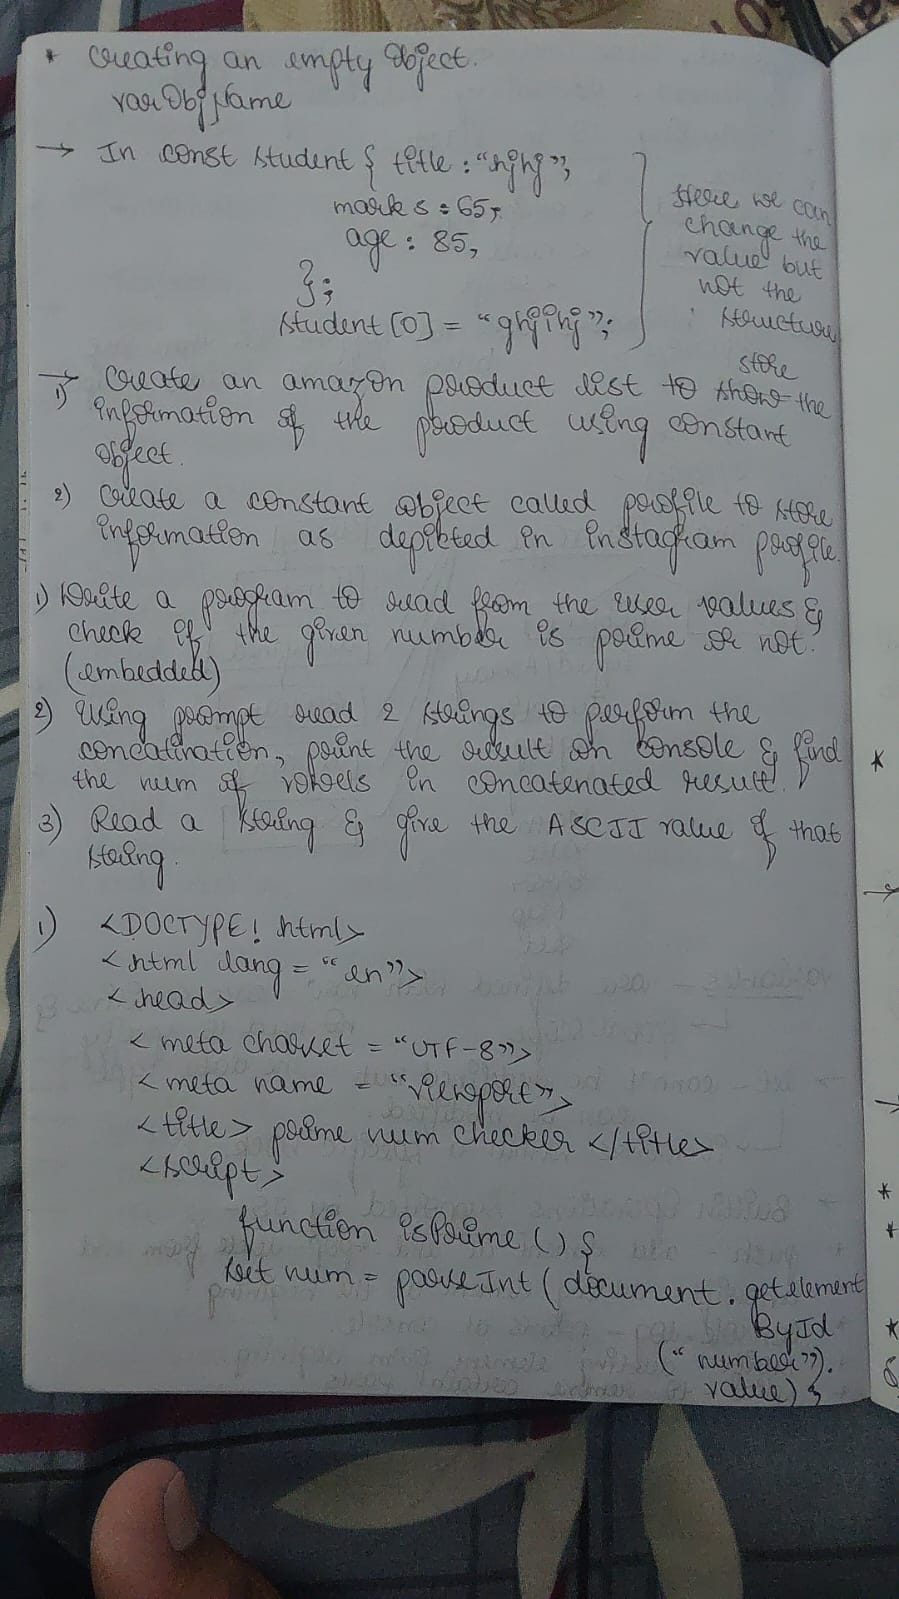 * Creating an empty Object.
var ObjName
→ In const student { title : "hjhj",
marks : 65,
age : 85,
};
student[0] = "ghjihj";
Here we can
change the
value but
not the
structure
store
→ 1) Create an amazon product list to show the
information of the product using constant
object.
2) Create a constant object called profile to store
information as depicted in instagram profile.
1) Write a program to read from the user values &
check if the given number is prime or not.
(embedded)
2) Using prompt read 2 strings to perform the
concatination, print the result on console & find
the num of vowels in concatenated result.
3) Read a string & give the ASCII value of that
string.
1) <DOCTYPE! html>
<html lang = "en">
<head>
<meta charset = "UTF-8">
<meta name = "viewport">
<title> prime num checker </title>
<script>
function isPrime () {
let num = parseInt ( document . getelement
ById
("number").
value) ;